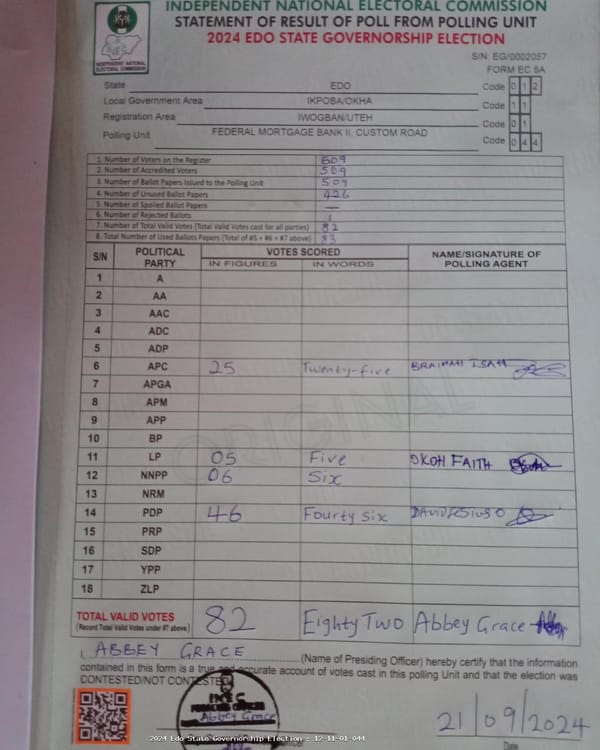 INDEPENDENT NATIONAL ELECTORAL COMMISSION
STATEMENT OF RESULT OF POLL FROM POLLING UNIT
2024 EDO STATE GOVERNORSHIP ELECTION
INEC
INDEPENDENT NATIONAL ELECTORAL COMMISSION
S/N: EG/0002057
FORM EC 8A
State EDO Code 0 1 2
Local Government Area IKPOBA/OKHA Code 1 1
Registration Area IWOGBAN/UTEH Code 0 1
Polling Unit FEDERAL MORTGAGE BANK II, CUSTOM ROAD Code 0 4 4
1. Number of Voters on the Register 509
2. Number of Accredited Voters 509
3. Number of Ballot Papers Issued to the Polling Unit 509
4. Number of Unused Ballot Papers 426
5. Number of Spoiled Ballot Papers —
6. Number of Rejected Ballots 1
7. Number of Total Valid Votes (Total Valid Votes cast for all parties) 82
8. Total Number of Used Ballots Papers (Total of #5 + #6 + #7 above) 83
S/N POLITICAL PARTY VOTES SCORED NAME/SIGNATURE OF POLLING AGENT
IN FIGURES IN WORDS
1 A
2 AA
3 AAC
4 ADC
5 ADP
6 APC 25 Twenty-five BRAIMAH ISAH
7 APGA
8 APM
9 APP
10 BP
11 LP 05 Five OKOH FAITH
12 NNPP 06 Six
13 NRM
14 PDP 46 Fourty Six
15 PRP
16 SDP
17 YPP
18 ZLP
ORIGINAL
TOTAL VALID VOTES 82 Eighty Two Abbey Grace
(Record Total Valid Votes under #7 above)
I, ABBEY GRACE (Name of Presiding Officer) hereby certify that the information
contained in this form is a true and accurate account of votes cast in this polling Unit and that the election was
CONTESTED/NOT CONTESTED
INEC
PRESIDING OFFICER
Abbey Grace
21/09/2024
Date
2024 Edo State Governorship Election : 12-11-01-044